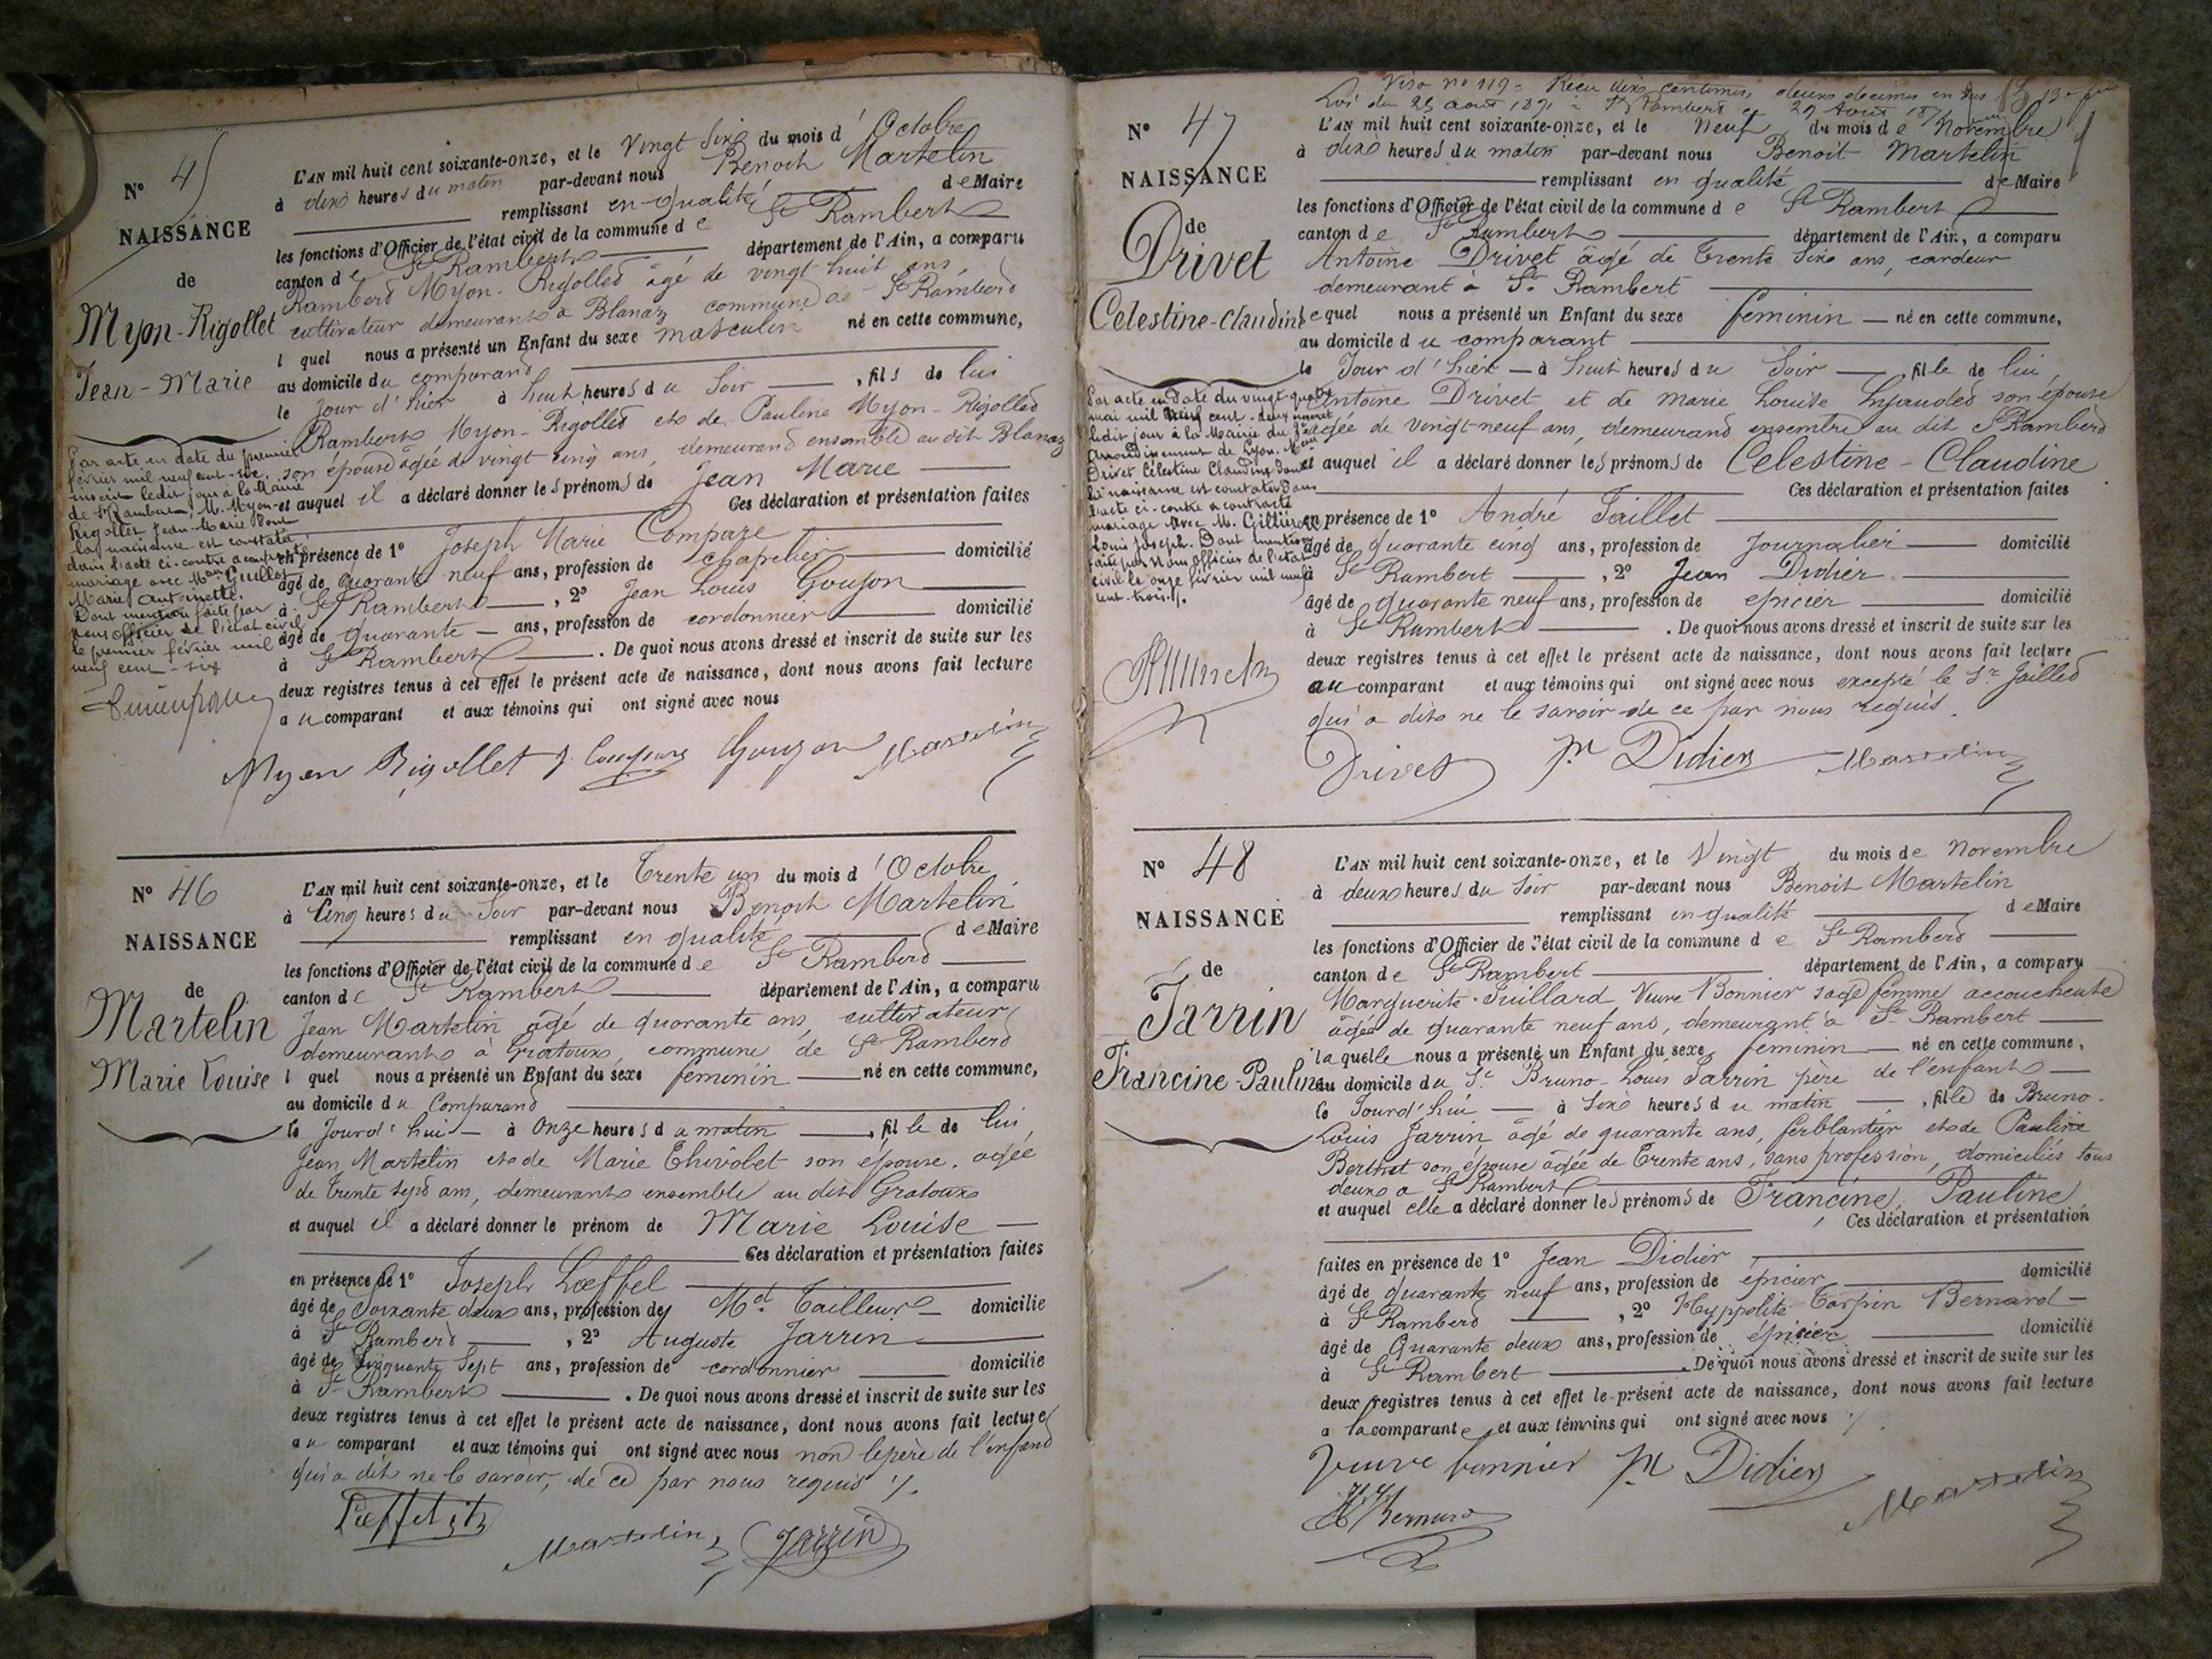 N° 45
NAISSANCE
de
Myon-Rigollet
Jean-Marie
L'AN mil huit cent soixante-onze, et le Vingt Six du mois d'Octobre
à dix heures du matin par-devant nous Benoit Martelin
remplissant en qualité de Maire
les fonctions d'Officier de l'état civil de la commune de St Rambert
canton de St Rambert département de l'Ain, a comparu
Rambert Myon-Rigollet âgé de vingt huit ans,
cultivateur demeurant à Blanaz commune de St Rambert
l quel nous a présenté un Enfant du sexe masculin né en cette commune,
au domicile du comparant
le jour d'hier à huit heures du soir, fils de lui
Rambert Myon-Rigollet et de Pauline Myon-Rigollet
son épouse âgée de vingt cinq ans, demeurant ensemble au dit Blanaz
et auquel il a déclaré donner les prénoms de Jean Marie
Ces déclaration et présentation faites
en présence de 1° Joseph Marie Compare
âgé de quarante neuf ans, profession de chapelier domicilié
à St Rambert, 2° Jean Louis Goujon
âgé de quarante ans, profession de cordonnier domicilié
à St Rambert. De quoi nous avons dressé et inscrit de suite sur les
deux registres tenus à cet effet le présent acte de naissance, dont nous avons fait lecture
au comparant et aux témoins qui ont signé avec nous
Par acte en date du premier
février mil neuf cent-six
inscrit ledit jour à la Mairie
de St Rambert, M. Myon-
Rigollet Jean-Marie dont
la naissance est constatée
dans l'acte ci-contre a contracté
mariage avec Guillot
Marie Antoinette.
Dont mention faite par
nous officier de l'état civil
le premier février mil
neuf cent-six
Myon Rigollet J. Compare Goujon Martelin
N° 46
NAISSANCE
de
Martelin
Marie Louise
L'AN mil huit cent soixante-onze, et le Trente un du mois d'Octobre
à Cinq heures du Soir par-devant nous Benoit Martelin
remplissant en qualité de Maire
les fonctions d'Officier de l'état civil de la commune de St Rambert
canton de St Rambert département de l'Ain, a comparu
Jean Martelin âgé de quarante ans, cultivateur
demeurant à Gratoux, commune de St Rambert
l quel nous a présenté un Enfant du sexe féminin né en cette commune,
au domicile du Comparant
le Jourd'hui à Onze heures du matin, fille de lui,
Jean Martelin et de Marie Thivolet son épouse, âgée
de trente sept ans, demeurant ensemble au dit Gratoux
et auquel il a déclaré donner le prénom de Marie Louise
Ces déclaration et présentation faites
en présence de 1° Joseph Lœffel
âgé de Soixante deux ans, profession de Md Tailleur domicilié
à St Rambert, 2° Auguste Jarrin
âgé de Cinquante Sept ans, profession de cordonnier domicilié
à St Rambert. De quoi nous avons dressé et inscrit de suite sur les
deux registres tenus à cet effet le présent acte de naissance, dont nous avons fait lecture
au comparant et aux témoins qui ont signé avec nous non le père de l'enfant
qui a dit ne le savoir, de ce par nous requis
Martelin Jarrin
Visa n° 119 = Reçu dix centimes, deux décimes en sus
Loi du 23 août 1871 = St Rambert le 29 Août 1871
N° 47
NAISSANCE
de
Drivet
Celestine-Claudine
L'AN mil huit cent soixante-onze, et le Neuf du mois de Novembre
à dix heures du matin par-devant nous Benoit Martelin
remplissant en qualité de Maire
les fonctions d'Officier de l'état civil de la commune de St Rambert
canton de St Rambert département de l'Ain, a comparu
Antoine Drivet âgé de trente Six ans, cardeur
demeurant à St Rambert
lequel nous a présenté un Enfant du sexe féminin né en cette commune,
au domicile du comparant
le Jour d'hier à huit heures du Soir, fille de lui,
Antoine Drivet et de Marie Louise son épouse
âgée de vingt-neuf ans, demeurant ensemble au dit St Rambert
et auquel il a déclaré donner les prénoms de Celestine-Claudine
Ces déclaration et présentation faites
en présence de 1° André Jaillet
âgé de quarante cinq ans, profession de Journalier domicilié
à St Rambert, 2° Jean Didier
âgé de quarante neuf ans, profession de epicier domicilié
à St Rambert. De quoi nous avons dressé et inscrit de suite sur les
deux registres tenus à cet effet le présent acte de naissance, dont nous avons fait lecture
au comparant et aux témoins qui ont signé avec nous excepté le Sr Jaillet
qui a dit ne le savoir de ce par nous requis.
Par acte en date du vingt-quatre
mai mil neuf cent-deux inscrit
ledit jour à la Mairie du
Arrondissement de Lyon,
Drivet Célestine Claudine dont
la naissance est constatée dans
l'acte ci-contre a contracté
mariage avec M. Gilliéron
Louis Joseph. Dont mention
faite par nous officier de l'état
civil le onze février mil neuf
cent-trois
Drivet Didier Martelin
N° 48
NAISSANCE
de
Jarrin
Francine-Pauline
L'AN mil huit cent soixante-onze, et le Vingt du mois de novembre
à deux heures du Soir par-devant nous Benoit Martelin
remplissant en qualité de Maire
les fonctions d'Officier de l'état civil de la commune de St Rambert
canton de St Rambert département de l'Ain, a comparu
Marguerite Juillard Veuve Bonnier sage femme accoucheuse
âgée de quarante neuf ans, demeurant à St Rambert
laquelle nous a présenté un Enfant du sexe féminin né en cette commune,
au domicile du Sr Bruno-Louis Jarrin père de l'enfant
le Jourd'hui à Six heures du matin, fille de Bruno-
Louis Jarrin âgé de quarante ans, ferblantier et de Pauline
Berthet son épouse âgée de Trente ans, sans profession, domiciliés tous
deux à St Rambert
et auquel elle a déclaré donner les prénoms de Francine, Pauline
Ces déclaration et présentation
faites en présence de 1° Jean Didier
âgé de quarante neuf ans, profession de épicier domicilié
à St Rambert, 2° Hyppolite Tarpin Bernard
âgé de Quarante deux ans, profession de épicier domicilié
à St Rambert. De quoi nous avons dressé et inscrit de suite sur les
deux registres tenus à cet effet le présent acte de naissance, dont nous avons fait lecture
a la comparante et aux témoins qui ont signé avec nous
Veuve bonnier Didier
Martelin